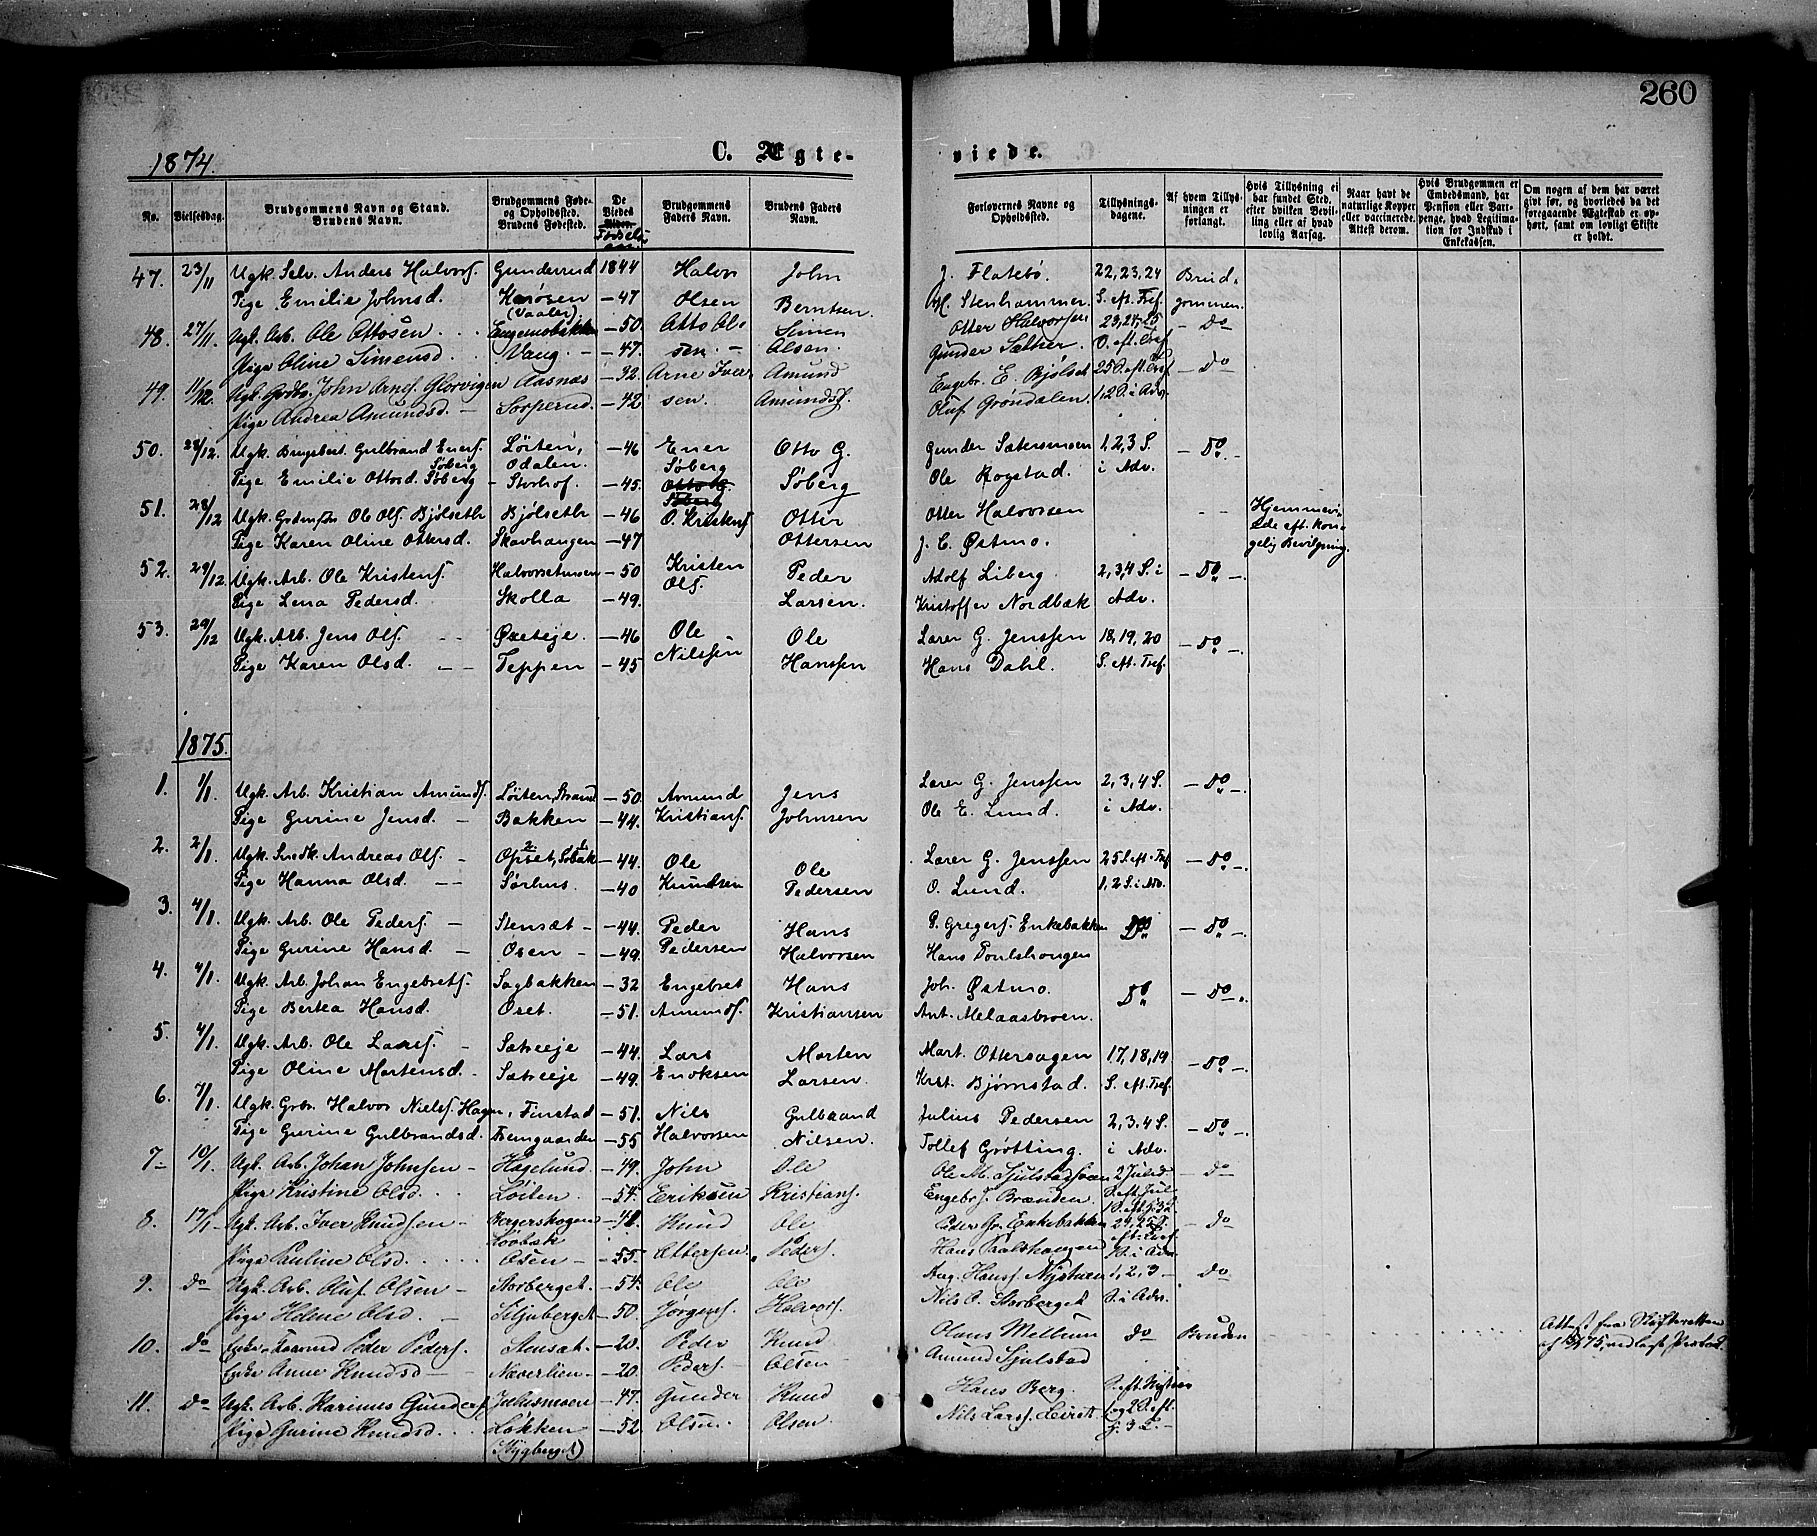 260
1874.
C. Ægte-
viede.
No.
Vielsesdag.
Brudgommens Navn og Stand.
Brudens Navn.
Brudgommens Føde-
og Opholdsted.
Brudens Fødested.
De
Viedes
Alder.
Fødselsaar
Brudgommens
Faders Navn.
Brudens Faders
Navn.
Forlovernes Navne og
Opholdsted.
Tillysnings-
dagene.
Af hvem Tillys-
ningen er
forlangt.
Hvis Tillysning ei
har fundet Sted,
efter hvilken Bevil-
ling eller af hvad
lovlig Aarsag.
Naar havt de
naturlige Kopper
eller vaccinerede.
Attest derom.
Hvis Brudgommen er
Embedsmand, har
Pension eller Vart-
penge, hvad Legitima-
tion for Indskud i
Enkekassen.
Om nogen af dem har været
givt før, og hvorledes da det
foregaaende Ægteskab er op-
hørt, samt om lovligt Skifte
er holdt.
47. 23/11 Ugk. Selv. Anders Halvors. Gunderud 1844 Halvor John J. Flatebø. 22, 23, 24 Brud-
Pige Emilie Johnsd. Knøsen (Vaaler) -47 Olsen Berntsen. M. Stenhammer. S. eft. Tref. gommen.
48. 27/11 Ugk. Arb. Ole Ottosen Engemobakken -50. Otto Ol- Simen Otter Halvorsen 23, 24, 25 - Do
Pige Oline Simensd. Vang. -47. sen. Olsen. Gunder Sæther. S. eft. Tref
49. 11/12 Ugk. Grdbr. John Arnes. Glorvigen Aasnæs -32. Arne Iver- Amund Engebr. E. Bjølset 25 S. eft. Tref - Do
Pige Andrea Amundsd. Sorperud. -42 sen. Amunds. Oluf Grøndalen. 1, 2 S. i Adv.
50. 28/12. Ugk. Gulbrand Eners. Søberg Løiten, Odalen. -46 Ener Søberg Otto G. Gunder Sætersmoen 1, 2, 3 S. - Do -
Pige Emilie Ottosd. Søberg - Storhof. -45. Søberg Ole Rogstad. i Adv.
51. 28/12 Ugk. Ole Ols. Bjølseth Bjølseth -46 O. Kristens. Otter Otter Halvorsen Hjemmevi-
Pige Karen Oline Ottersd. Skavhaugen -47 Ottersen J. C. Østmo. ede eft. kon-
gelig Bevilgning.
52. 29/12 Ugk. Arb. Ole Kristens. Halvorsetunsen -50 Kristen Peder Adolf Liberg. 2, 3, 4 S. i - Do -
Pige Lena Pedersd. Skolla -49. Ols. Larsen. Kristoffer Nordbæk Adv.
53. 29/12 Ugk. Arb. Jens Ols. Øxeteje -46 Ole Ole Lærer G. Jenssen 18, 19, 20 - Do -
Pige Karen Olsd. Teppen -45 Nilssen Hanssen Hans Dahl. S. eft. Tref.
1875.
1. 1/1 Ugk. Arb. Kristian Amunds. Løiten, Strand -50. Amund Jens Lærer G. Jenssen 2, 3, 4 S. - Do -
Pige Gurine Jensd. Bakken -44. Kristians. Johnsen Ole E. Lund. i Adv.
2. 2/1 Ugk. Snedk. Andreas Ols. Opset, Sobak -44. Ole Ole Lærer G. Jenssen 25 S. eft. Tref - Do -
Pige Hanna Olsd. Sørhus. -40 Knudsen Pedersen O. Lund. 1, 2 S. i Adv.
3. 4/1 Ugk. Arb. Ole Peders. Stensæt -44. Peder Hans P. Gregers. Enkebakken Do - Do -
Pige Gurine Hansd. Osen -49. Pedersen Halvorsen Hans Poulshaugen
4. 4/1. Ugk. Arb. Johan Engebrets. Sagbakken -32 Engebret Hans Joh. Østmo. Do - Do -
Pige Bertea Hansd. Oset. -51. Amunds. Kristiansen Ant. Melaasbroen.
5. 4/1. Ugk. Arb. Ole Lars. Sætreeje -44. Lars Morten Mart. Ottersagen 17, 18, 19 - Do -
Pige Oline Mortensd. Sætreeje -49. Evoksen Larsen. Krist. Bjørnstad. S. eft. Tref.
6. 7/1. Ugk. Grbr. Halvor Niels. Hagen, Finstad -51. Nils Gulbrand Julius Pedersen 2, 3, 4 S. - Do -
Pige Gurine Gulbrandsd. -55 Halvorsen Nilsen. Tollef Grøtting. i Adv.
7. 10/1. Ugk. Arb. Johan Johnsen Hagelund. -49. John Ole Ole M. 2 Juled - do -
Pige Kristine Olsd. Løiten. -54. Eriksen Kristians. Engebr. Brænden S. eft. Jul
8. 17/1 Ugk. Arb. Iver Knudsen Bergerskogen Løbæk -48. Knud Ole Peder Gr. Enkebakken 24, 25 S. eft. Tref - do
Pige Pauline Olsd. Osen -55. Ottersen. Peders. Hans Paalshaugen S. i Adv.
9. do Ugk. Arb. Oluf Olsen Storberget. -54. Ole Ole Aug. Hans. Nystuen 1, 2, 3 - do
Pige Helene Olsd. Siljuberget -50. Jørgens. Halvors. Nils O. Storberget S. i Adv.
10. do Enkem. Peder Peders. Stensæt. -20. Peder Knud Olaus Mellum do Bruden Attest fra Skifteretten
Enke Anne Knudsd Næverlien -20. Peders. Olsen Amund Sjulstad
11. do Ugk. Arb. Karinus Gunders. Julusmoen -47. Gunder Knud Hans Berg.
Pige Gurine Knudsd. Løkken (Nyberget) -52 Olsen. Olsen Nils Lars.